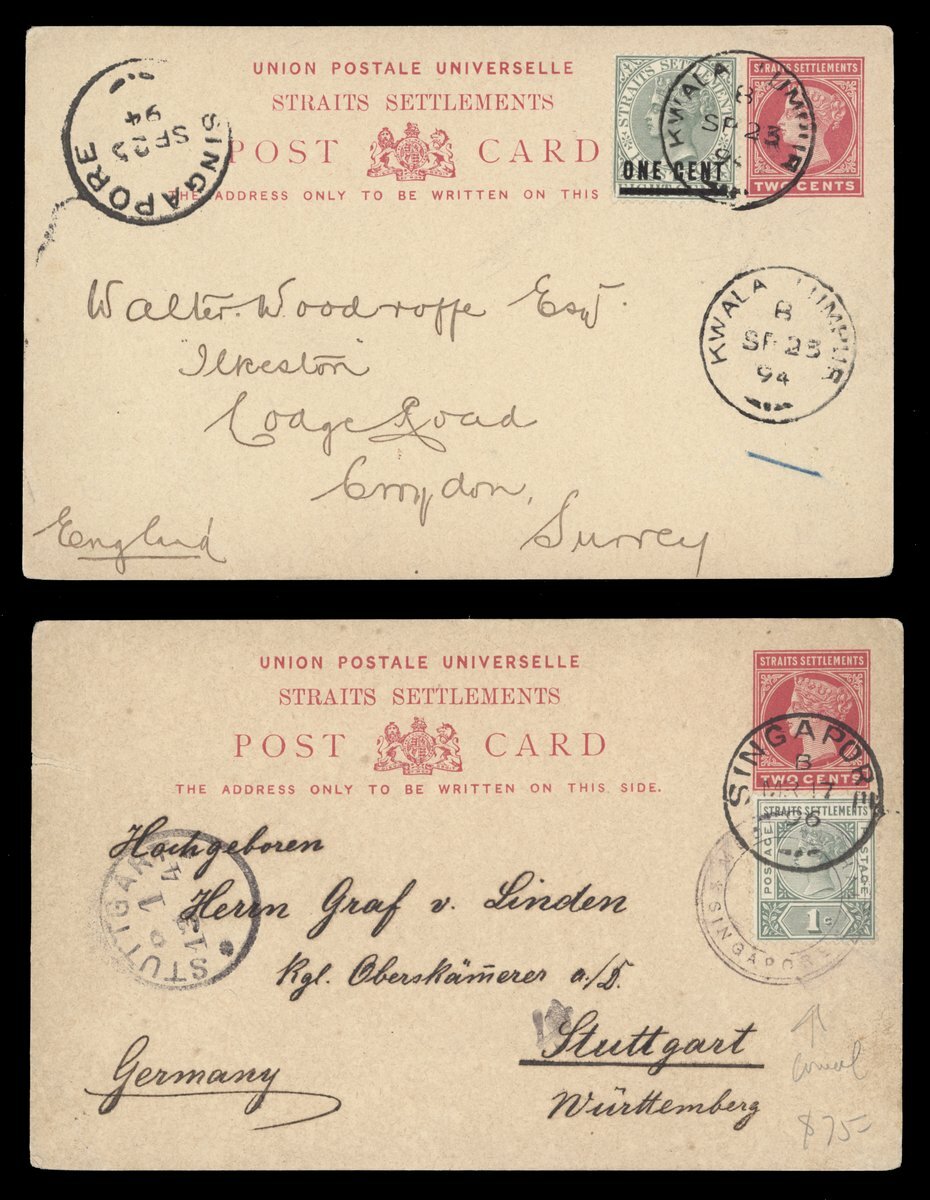 UNION POSTALE UNIVERSELLE
STRAITS SETTLEMENTS
POST CARD
THE ADDRESS ONLY TO BE WRITTEN ON THIS
SINGAPORE
SP 25
94
STRAITS SETTLEMENTS
ONE CENT
KWALA LUMPUR
B
SP 23
94
STRAITS SETTLEMENTS
TWO CENTS
Walter Woodroffe Esq.
Ilkeston
Lodge Road
Croydon,
Surrey
England
KWALA LUMPUR
B
SP 23
94
UNION POSTALE UNIVERSELLE
STRAITS SETTLEMENTS
POST CARD
THE ADDRESS ONLY TO BE WRITTEN ON THIS SIDE.
STRAITS SETTLEMENTS
TWO CENTS
SINGAPORE
B
MR 17
96
STRAITS SETTLEMENTS
POSTAGE
POSTAGE
1c
SINGAPORE
STUTTGART
Hochgeboren
Herrn Graf v. Linden
Kgl. Oberskäm̄erer a/D.
Stuttgart
Württemberg
Germany
$75-